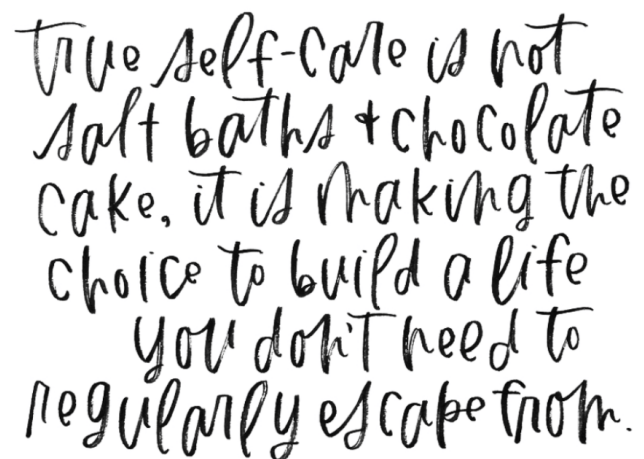 true self-care is not
salt baths + chocolate
cake, it is making the
choice to build a life
you don't need to
regularly escape from.